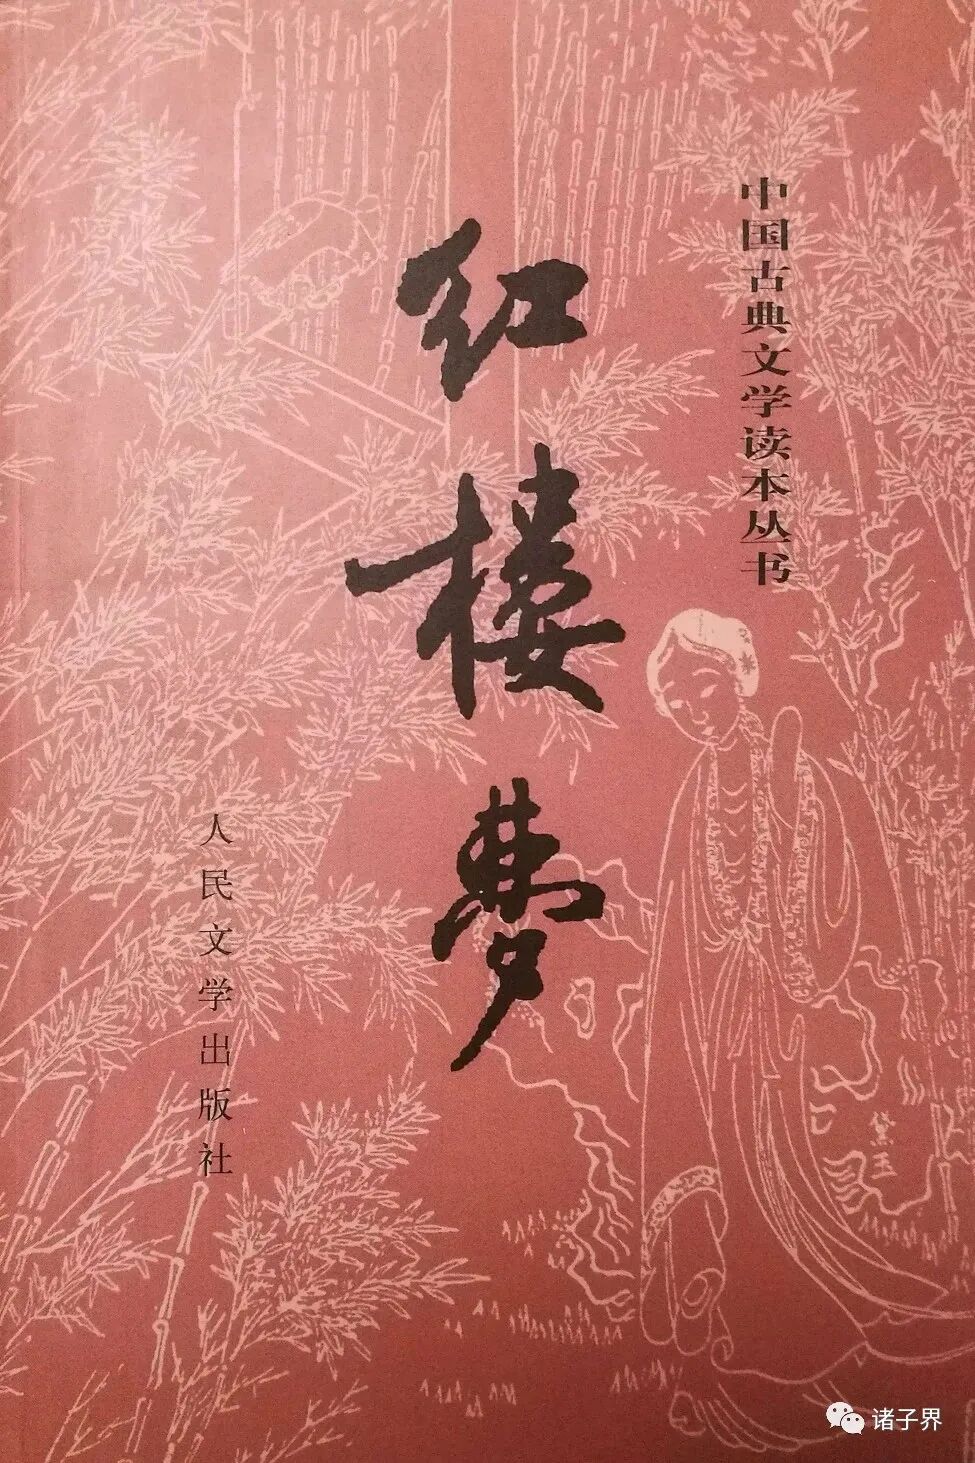 中国古典文学读本丛书
红楼梦
人民文学出版社
黛玉
诸子界